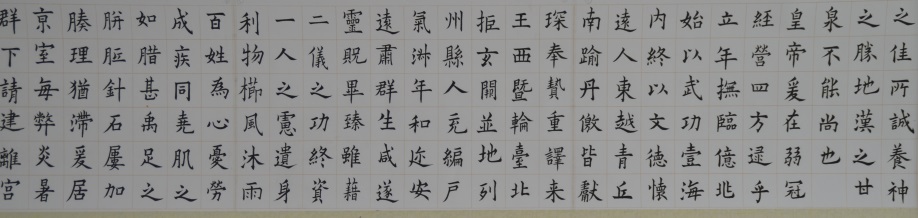 之佳所誠養神
之勝地漢之甘
泉不能尚也
皇帝爰在弱冠
經營四方逮乎
立年撫臨億兆
始以武功壹海
内終以文徳懷
遠人東越青丘
南踰丹徼皆獻
琛奉贄重譯来
王西暨輪臺北
拒玄關並地列
州縣人充編戸
氣淑年和迩安
遠肅群生咸遂
靈貺畢臻雖藉
二儀之功終資
一人之慮遺身
利物櫛風沐雨
百姓為心憂勞
成疾同堯肌之
如腊甚禹足之
胼胝針石屢加
腠理猶滯爰居
京室毎弊炎暑
群下請建離宮